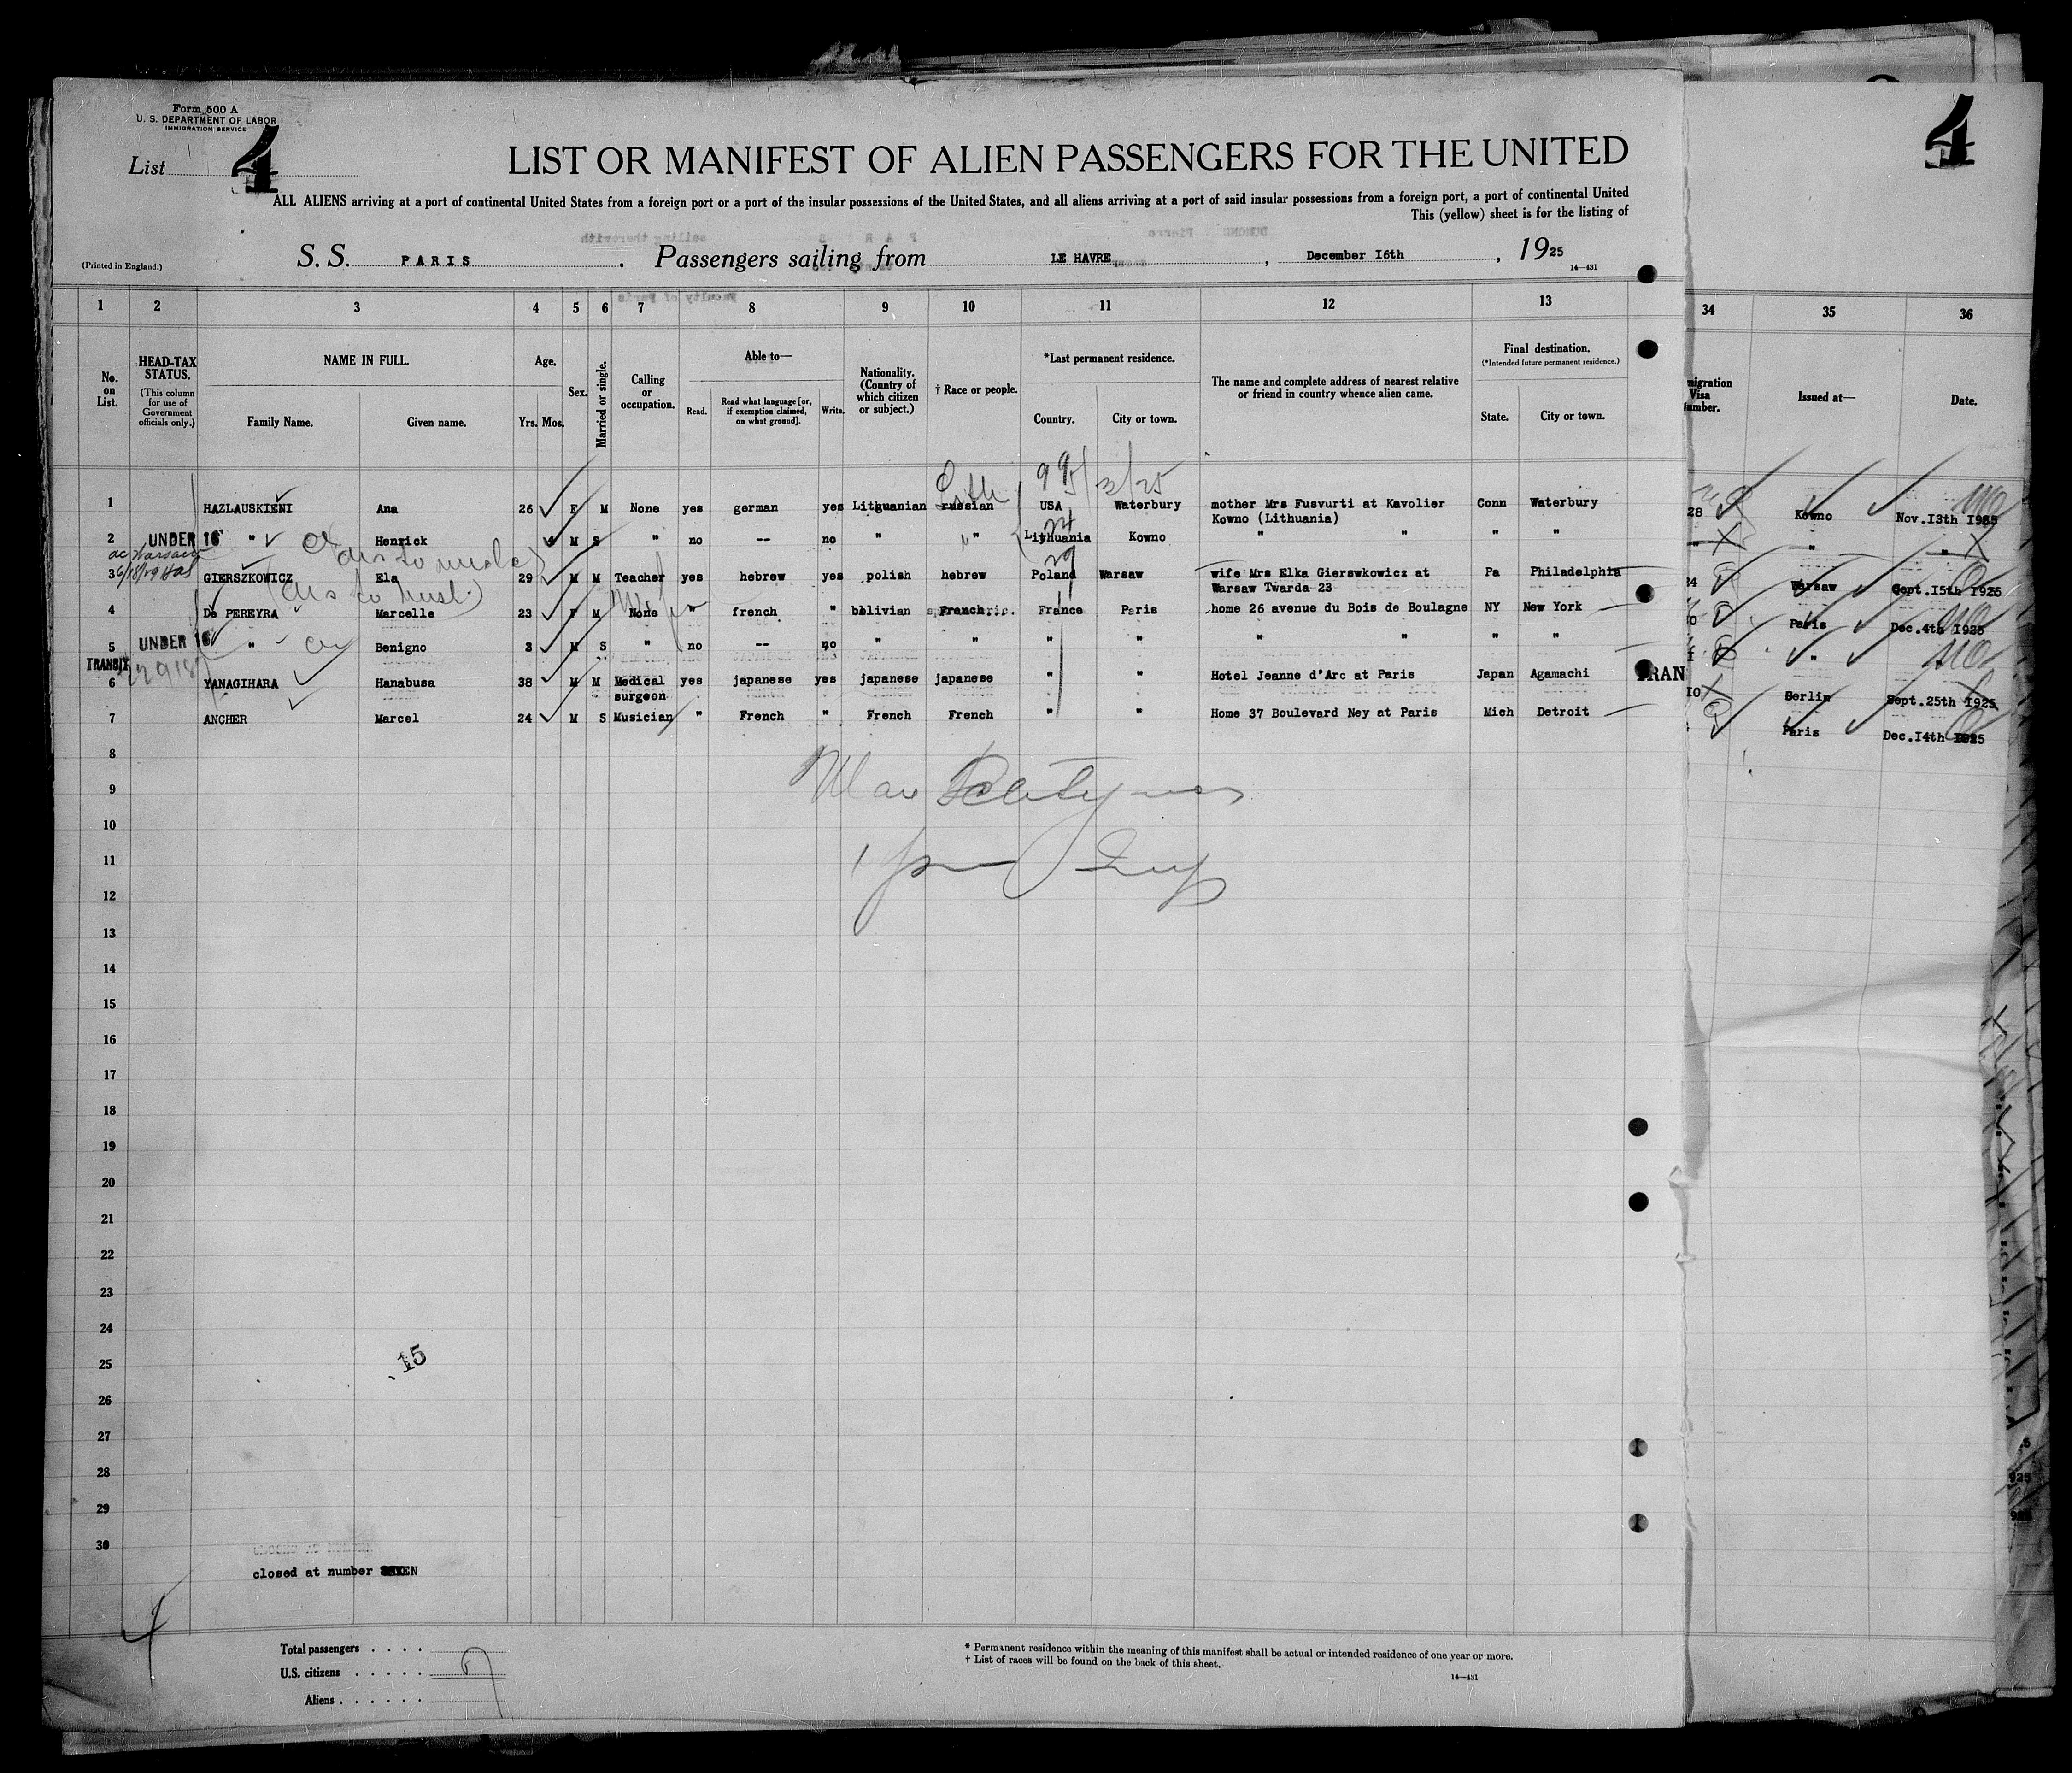 Form 500 A
U. S. DEPARTMENT OF LABOR
IMMIGRATION SERVICE
List 4
4
LIST OR MANIFEST OF ALIEN PASSENGERS FOR THE UNITED
ALL ALIENS arriving at a port of continental United States from a foreign port or a port of the insular possessions of the United States, and all aliens arriving at a port of said insular possessions from a foreign port, a port of continental United
This (yellow) sheet is for the listing of
(Printed in England.)
S. S. PARIS. Passengers sailing from LE HAVRE, December 16th, 1925
14—431
1 2 3 4 5 6 7 8 9 10 11 12 13 34 35 36
No. on List.
HEAD-TAX STATUS.
(This column for use of Government officials only.)
NAME IN FULL.
Family Name. Given name.
Age.
Yrs. Mos.
Sex.
Married or single.
Calling or occupation.
Able to—
Read. Read what language [or, if exemption claimed, on what ground]. Write.
Nationality. (Country of which citizen or subject.)
† Race or people.
*Last permanent residence.
Country. City or town.
The name and complete address of nearest relative or friend in country whence alien came.
Final destination.
(*Intended future permanent residence.)
State. City or town.
Visa
Issued at—
Date.
1 HAZLAUSKIENI Ana 26 F M None yes german yes Lithuanian russian USA Waterbury mother Mrs Fusvurti at Kavolier Conn Waterbury 28 Kowno Nov.13th 1925
Kowno (Lithuania)
2 UNDER 16 " Henrick M S " no -- no " " Lithuania Kowno " " " " " "
3 GIERSZKOWICZ Ela 29 M M Teacher yes hebrew yes polish hebrew Poland Warsaw wife Mrs Elka Gierswkowicz at Pa Philadelphia Warsaw Sept.15th 1925
Warsaw Twarda 23
4 De PEREYRA Marcelle 23 F M None " french " bolivian French France Paris home 26 avenue du Bois de Boulagne NY New York Paris Dec.4th 1925
5 UNDER 16 " Benigno M S " no -- no " " " " " " " " "
TRANSIT
6 YANAGIHARA Hanabusa 38 M M Medical yes japanese yes japanese japanese " " Hotel Jeanne d'Arc at Paris Japan Agamachi TRAN 10 Berlin Sept.25th 1925
surgeon
7 ANCHER Marcel 24 M S Musician " French " French French " " Home 37 Boulevard Ney at Paris Mich Detroit Paris Dec.14th 1925
8
9
10
11
12
13
14
15
16
17
18
19
20
21
22
23
24
25
15
26
27
28
29
30
closed at number
Total passengers . . . .
U.S. citizens . . . . .
Aliens . . . . . .
* Permanent residence within the meaning of this manifest shall be actual or intended residence of one year or more.
† List of races will be found on the back of this sheet.
14—431